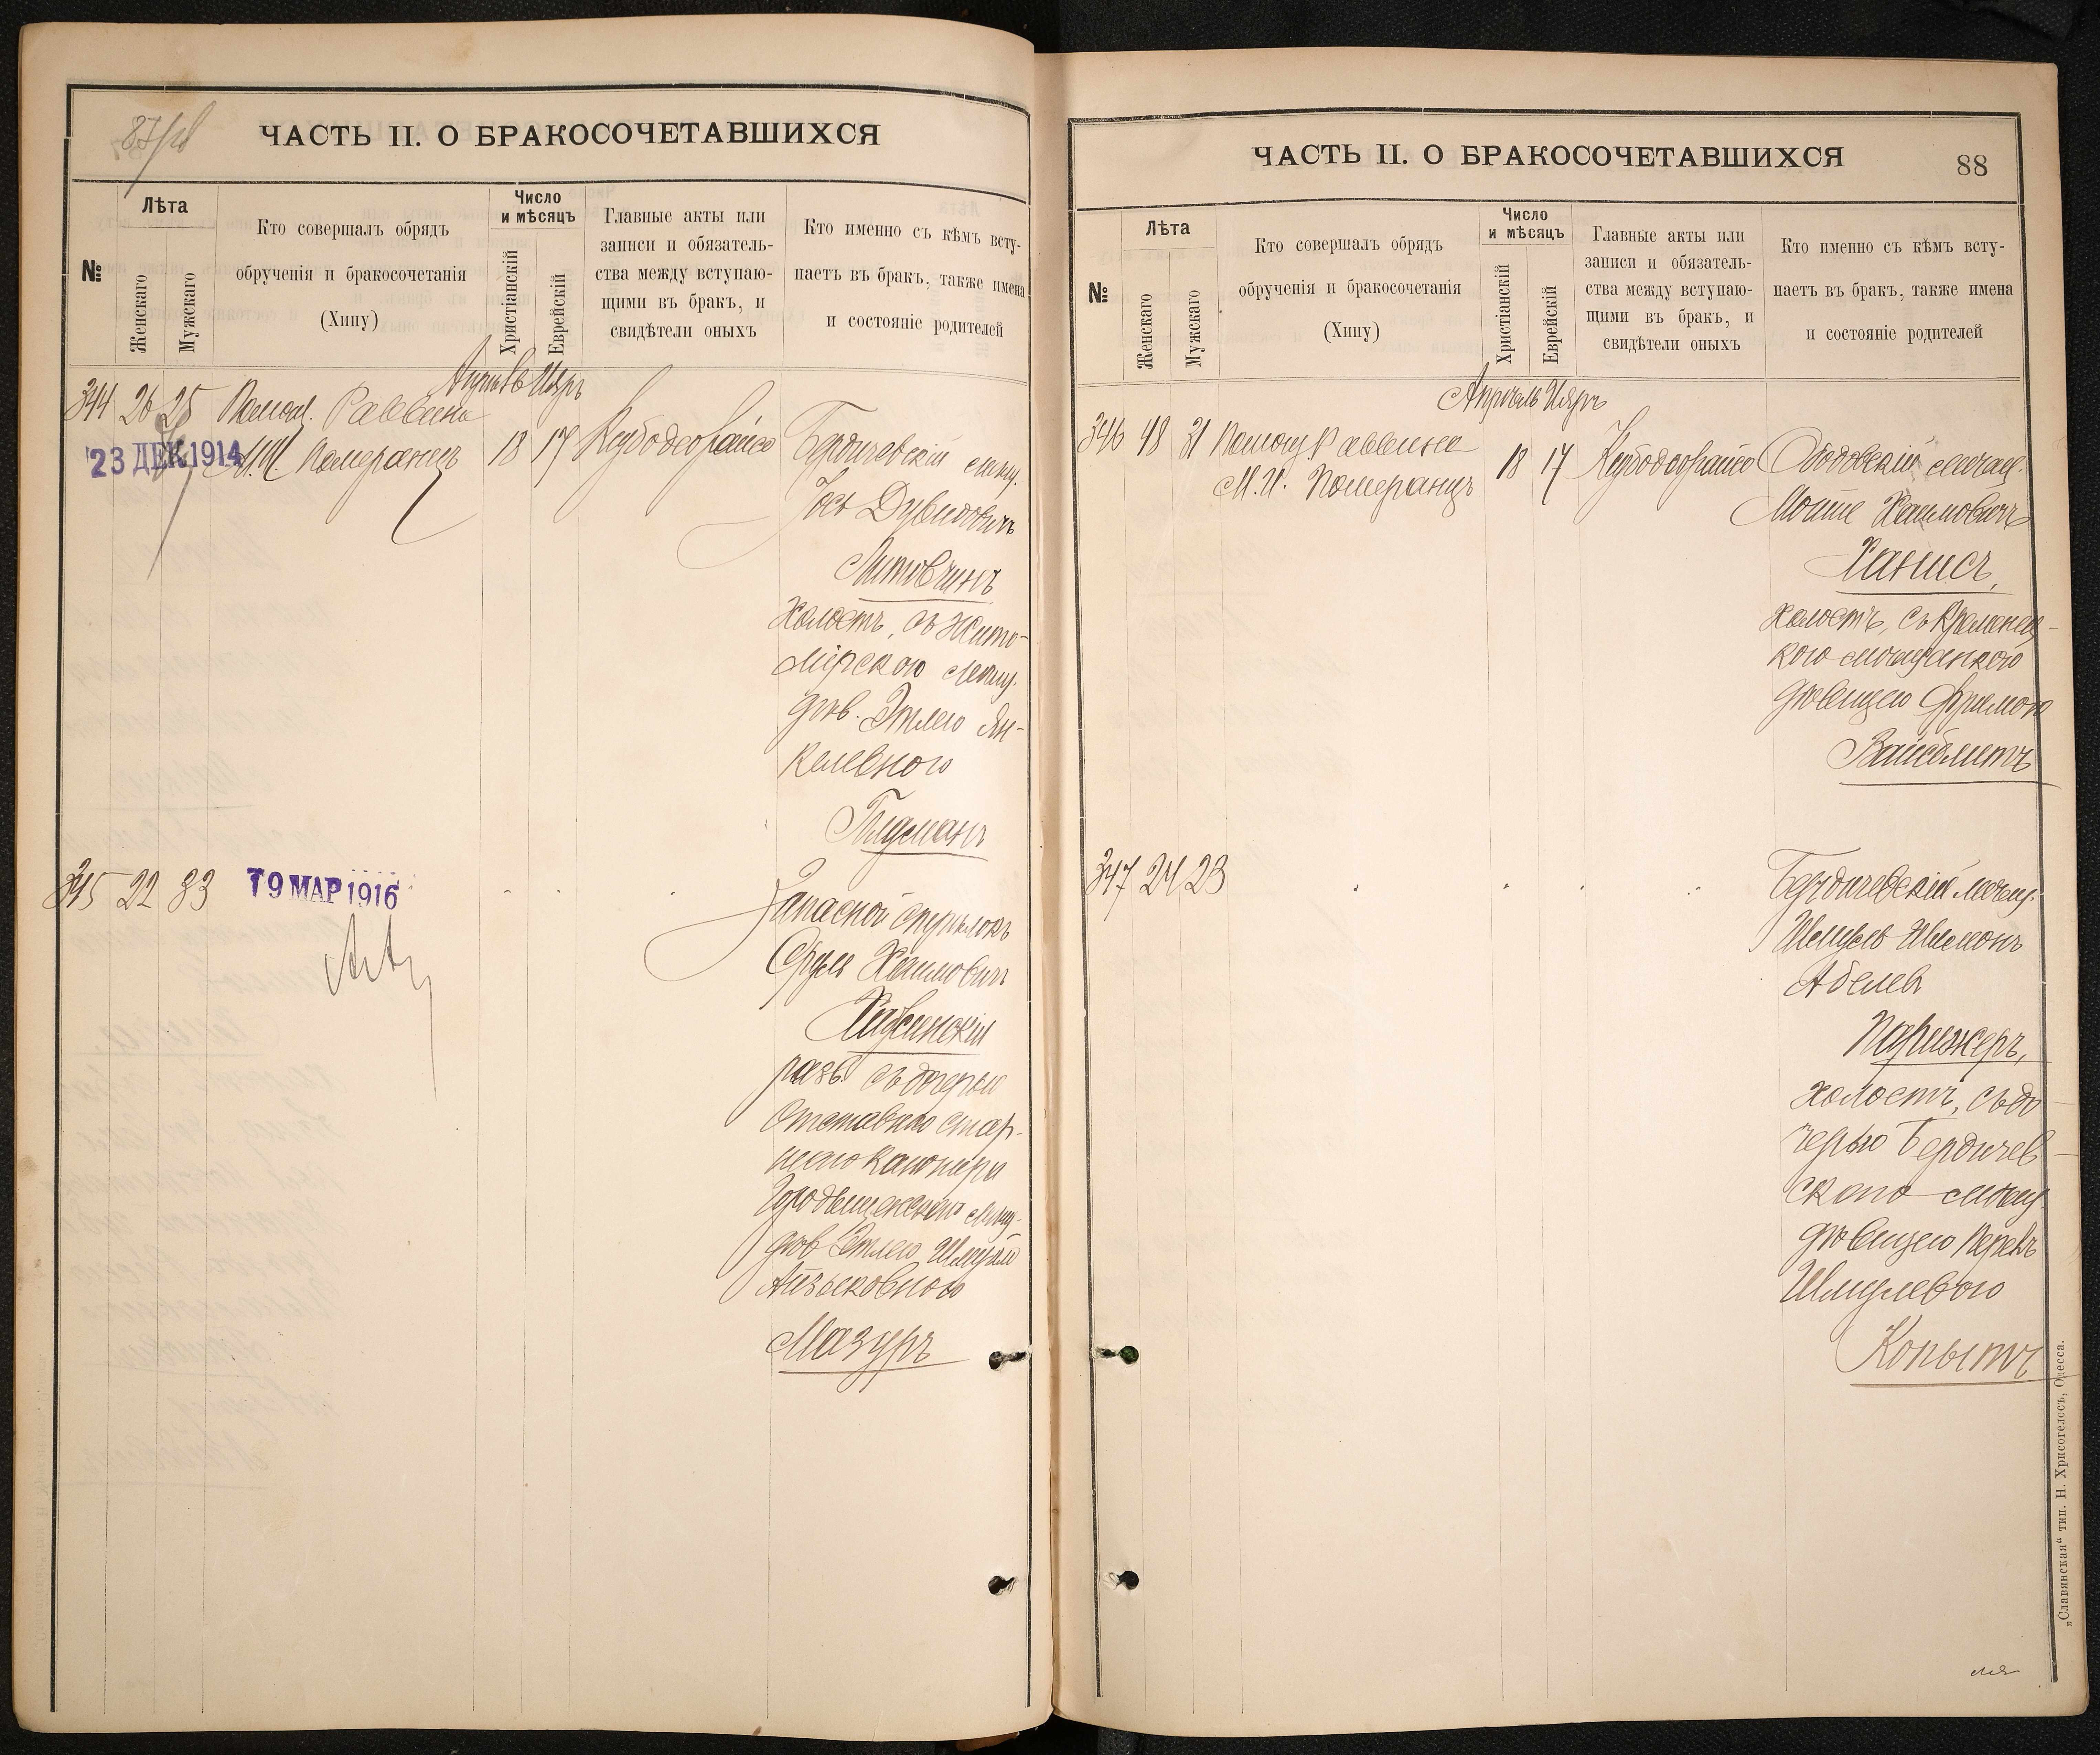 87об
ЧАСТЬ II. О БРАКОСОЧЕТАВШИХСЯ
№
Лѣта
Женскаго
Мужскаго
Кто совершалъ обрядъ
обрученія и бракосочетанія
(Хипу)
Число
и мѣсяцъ
Христіанскій
Еврейскій
Главные акты или
записи и обязатель-
ства между вступаю-
щими въ бракъ, и
свидѣтели оныхъ
Кто именно съ кѣмъ всту-
паетъ въ бракъ, также имена
и состояніе родителей
Апрѣль Ияръ
344 26 25 Помощ. Раввина
23 ДЕК 1914
М.И. Померанцъ 18 17 Бердичевскій мѣщ.
Іось Дувидовичъ
Литовчинъ
холостъ, съ Жито-
мірскою мѣщ.
дѣв. Этлею Ян-
келевною
Глузманъ
345 22 33
19 МАР 1916
Запасной стрѣлокъ
Сруль Хаимовичъ
разв. съ дочерью
Отставного стар-
шаго канонира
мѣщ.
дѣв. Этлею
Айзиковною
Мазуръ
ЧАСТЬ II. О БРАКОСОЧЕТАВШИХСЯ
88
№
Лѣта
Женскаго
Мужскаго
Кто совершалъ обрядъ
обрученія и бракосочетанія
(Хипу)
Число
и мѣсяцъ
Христіанскій
Еврейскій
Главные акты или
записи и обязатель-
ства между вступаю-
щими въ бракъ, и
свидѣтели оныхъ
Кто именно съ кѣмъ всту-
паетъ въ бракъ, также имена
и состояніе родителей
Апрѣль Ияръ
346 48 31 Помощ Раввина
М.И. Померанцъ 18 17 Ободовскій мѣщан.
Мошке Хаимовичъ
Ханисъ,
холостъ, съ Кременец-
кою мѣщанкою
дѣвицею Фримою
Вайсблитъ
347 24 23 Бердичевскій мѣщ.
Шмуль Шлемонъ
Абелевъ
Парижеръ,
холостъ, съ до-
черью Бердичев-
скаго мѣщ.
дѣвицею Перель
Шмулевою
Копытъ
„Славянская“ тип. Н. Хрисогелосъ, Одесса.